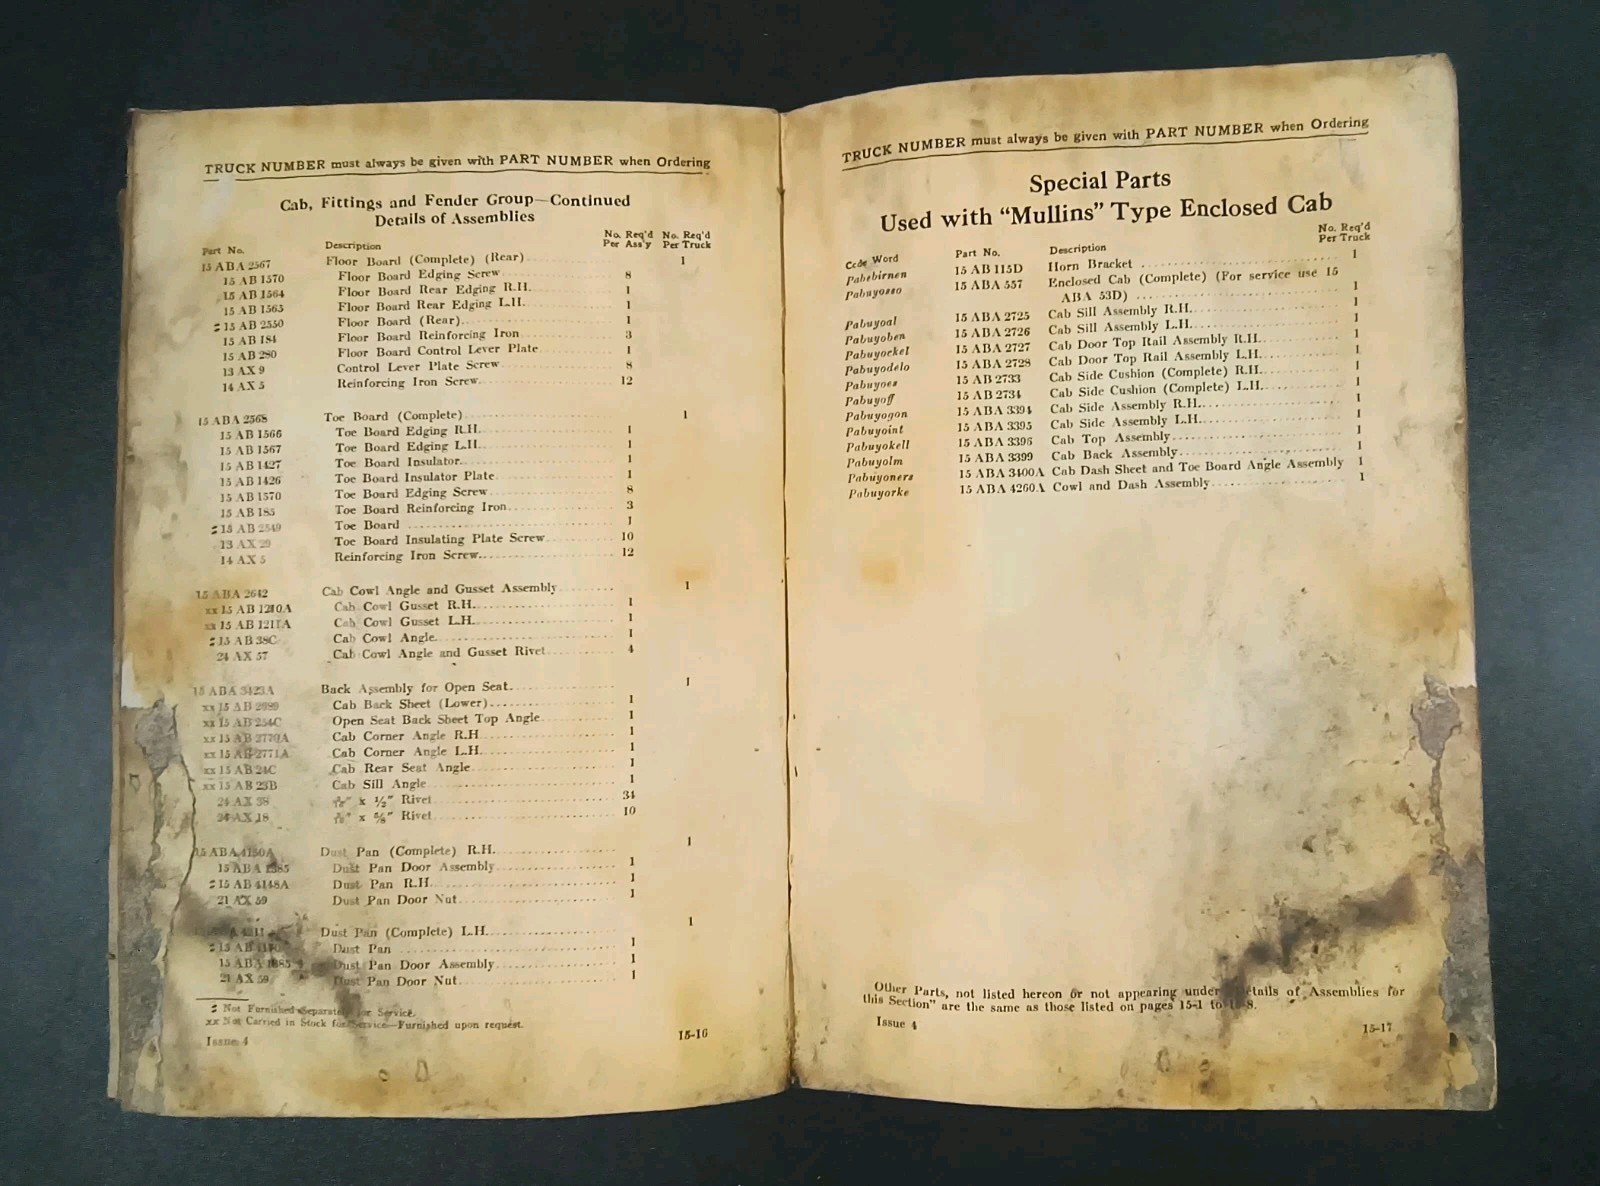 TRUCK NUMBER must always be given with PART NUMBER when Ordering
Cab, Fittings and Fender Group—Continued
Details of Assemblies
Part No. Description No. Req'd Per Ass'y No. Req'd Per Truck
15 ABA 2567 Floor Board (Complete) (Rear) 1
15 AB 1570 Floor Board Edging Screw 8
15 AB 1564 Floor Board Rear Edging R.H. 1
15 AB 1565 Floor Board Rear Edging L.H. 1
‡ 15 AB 2550 Floor Board (Rear) 1
15 AB 184 Floor Board Reinforcing Iron 3
15 AB 280 Floor Board Control Lever Plate 1
13 AX 9 Control Lever Plate Screw 8
14 AX 5 Reinforcing Iron Screw 12
15 ABA 2568 Toe Board (Complete) 1
15 AB 1566 Toe Board Edging R.H. 1
15 AB 1567 Toe Board Edging L.H. 1
15 AB 1427 Toe Board Insulator 1
15 AB 1426 Toe Board Insulator Plate 1
15 AB 1570 Toe Board Edging Screw 8
15 AB 185 Toe Board Reinforcing Iron 3
‡ 15 AB 2549 Toe Board 1
13 AX 29 Toe Board Insulating Plate Screw 10
14 AX 5 Reinforcing Iron Screw 12
15 ABA 2642 Cab Cowl Angle and Gusset Assembly 1
xx 15 AB 1210A Cab Cowl Gusset R.H. 1
xx 15 AB 1211A Cab Cowl Gusset L.H. 1
‡ 15 AB 38C Cab Cowl Angle 1
24 AX 57 Cab Cowl Angle and Gusset Rivet 4
15 ABA 3423A Back Assembly for Open Seat 1
xx 15 AB Cab Back Sheet (Lower) 1
xx 15 AB 254C Open Seat Back Sheet Top Angle 1
xx 15 AB 2770A Cab Corner Angle R.H. 1
xx 15 AB 2771A Cab Corner Angle L.H. 1
xx 15 AB 24C Cab Rear Seat Angle 1
xx 15 AB 23B Cab Sill Angle 1
24 AX 38 x 1/2" Rivet 34
24 AX 18 x 5/8" Rivet 10
15 ABA 4150A Dust Pan (Complete) R.H. 1
15 ABA 1385 Dust Pan Door Assembly 1
‡ 15 AB 4148A Dust Pan R.H. 1
21 AX 59 Dust Pan Door Nut 1
Dust Pan (Complete) L.H. 1
‡ 15 AB Dust Pan 1
15 ABA 1385 Dust Pan Door Assembly 1
21 AX 59 Dust Pan Door Nut 1
‡ Not Furnished Separately for Service.
xx Not Carried in Stock for Service—Furnished upon request.
Issue 4 15-16
TRUCK NUMBER must always be given with PART NUMBER when Ordering
Special Parts
Used with "Mullins" Type Enclosed Cab
Code Word Part No. Description No. Req'd Per Truck
Pabebirnen 15 AB 115D Horn Bracket 1
Pabuyosso 15 ABA 557 Enclosed Cab (Complete) (For service use 15
ABA 53D) 1
Pabuyoal 15 ABA 2725 Cab Sill Assembly R.H. 1
Pabuyoben 15 ABA 2726 Cab Sill Assembly L.H. 1
Pabuyockel 15 ABA 2727 Cab Door Top Rail Assembly R.H. 1
Pabuyodelo 15 ABA 2728 Cab Door Top Rail Assembly L.H. 1
Pabuyoes 15 AB 2733 Cab Side Cushion (Complete) R.H. 1
Pabuyoff 15 AB 2734 Cab Side Cushion (Complete) L.H. 1
Pabuyogon 15 ABA 3394 Cab Side Assembly R.H. 1
Pabuyoint 15 ABA 3395 Cab Side Assembly L.H. 1
Pabuyokell 15 ABA 3396 Cab Top Assembly 1
Pabuyolm 15 ABA 3399 Cab Back Assembly 1
Pabuyoners 15 ABA 3400A Cab Dash Sheet and Toe Board Angle Assembly 1
Pabuyorke 15 ABA 4260A Cowl and Dash Assembly 1
Other Parts, not listed hereon or not appearing under Details of Assemblies for
this Section" are the same as those listed on pages 15-1 to
Issue 4 15-17